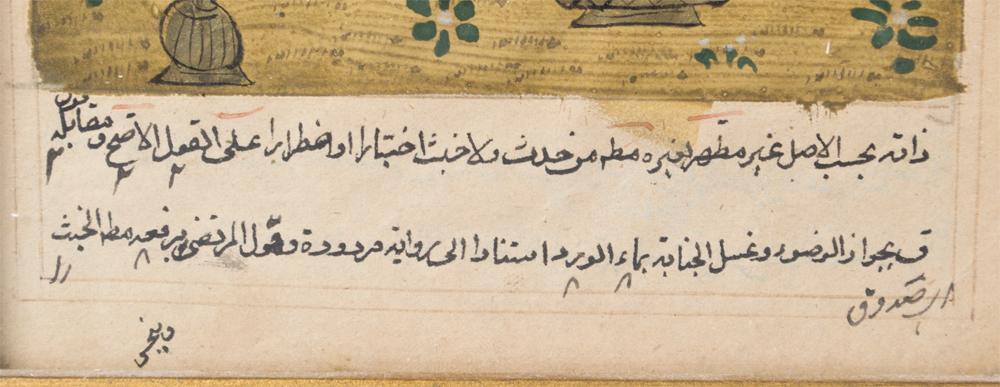 ذاته بحسب الاصل غير مطهر لغيره مطه من حدث ولا خبث اختيارا او اضطرارا على القول الاصح ومقابله
قول
ق بجواز الوضوء وغسل الجنابة بماء الورد استنادا الى رواية مردودة وقول المرتضى برفعه مطه الخبث
الصدوق
وينجس